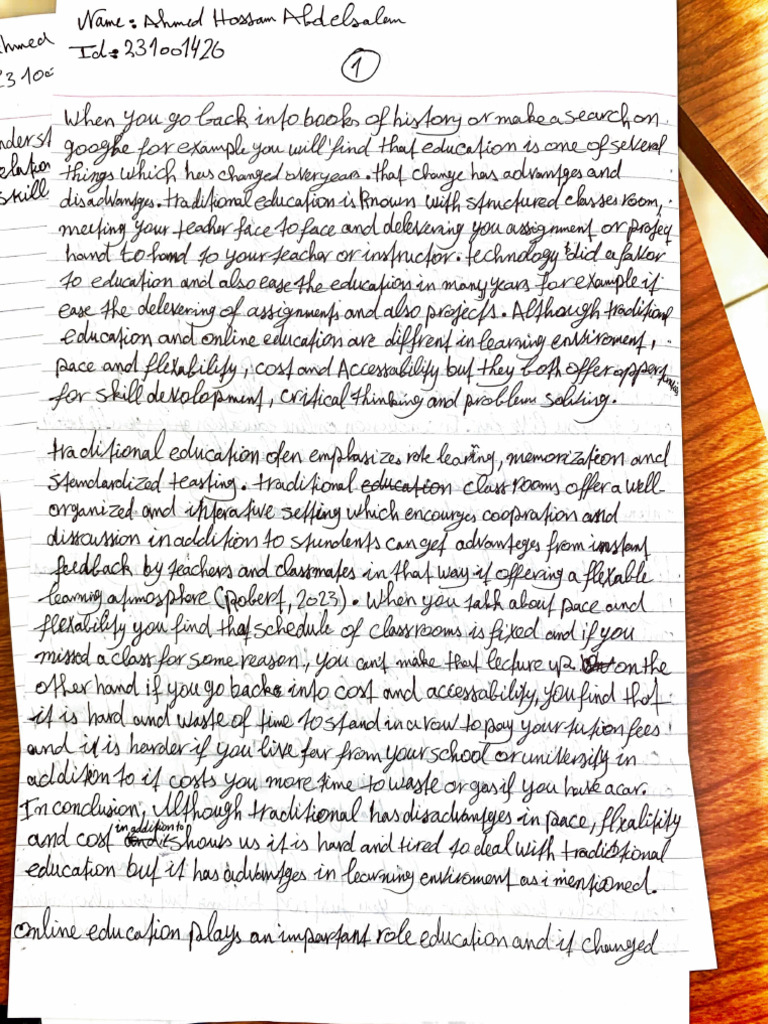 Name: Ahmed Hossam Abdelsalam
Id: 231001426
1
hmed
3100
nderst
elation
skill
When you go back into books of history or make a search on
googhe for example you will find that education is one of several
things which has changed over years. that change has advantges and
disadvantges. traditional education is known with structured classes room,
meeting your teacher face to face and delevering you assignment or project
hand to hand to your teacher or instructor. technology did a favor
to education and also ease the education in many years for example it
ease the delevering of assignments and also projects. Although traditional
education and online education are diffrent in learning enviroment,
pace and flexability, cost and Accessability but they both offer opportunities
for skill devolopment, critical thinking and problem solving.
traditional education ofen emphasizes rote learing, memorization and
standardized teasting. traditional education class rooms offer a well-
organized and interative setting which encourges coopration and
disscussion in addition to stundents can get advanteges from instant
feedback by teachers and classmates in that way it offering a flexable
learning atmosphere (Robert, 2023). When you talk about pace and
flexability you find that schedule of classrooms is fixed and if you
missed a class for some reason, you can't make that lecture up. on the
other hand if you go back into cost and accessability, you find that
it is hard and waste of time to stand in a row to pay your tution fees
and it is harder if you live far from your school or university in
addition to it costs you more time to waste or gas if you have a car.
In conclusion, Although traditional has disadvantges in pace, flexality
and cost in addition to shows us it is hard and tired to deal with traditional
education but it has advantges in learning enviroment as i mentioned.
online education plays an important role education and it changed